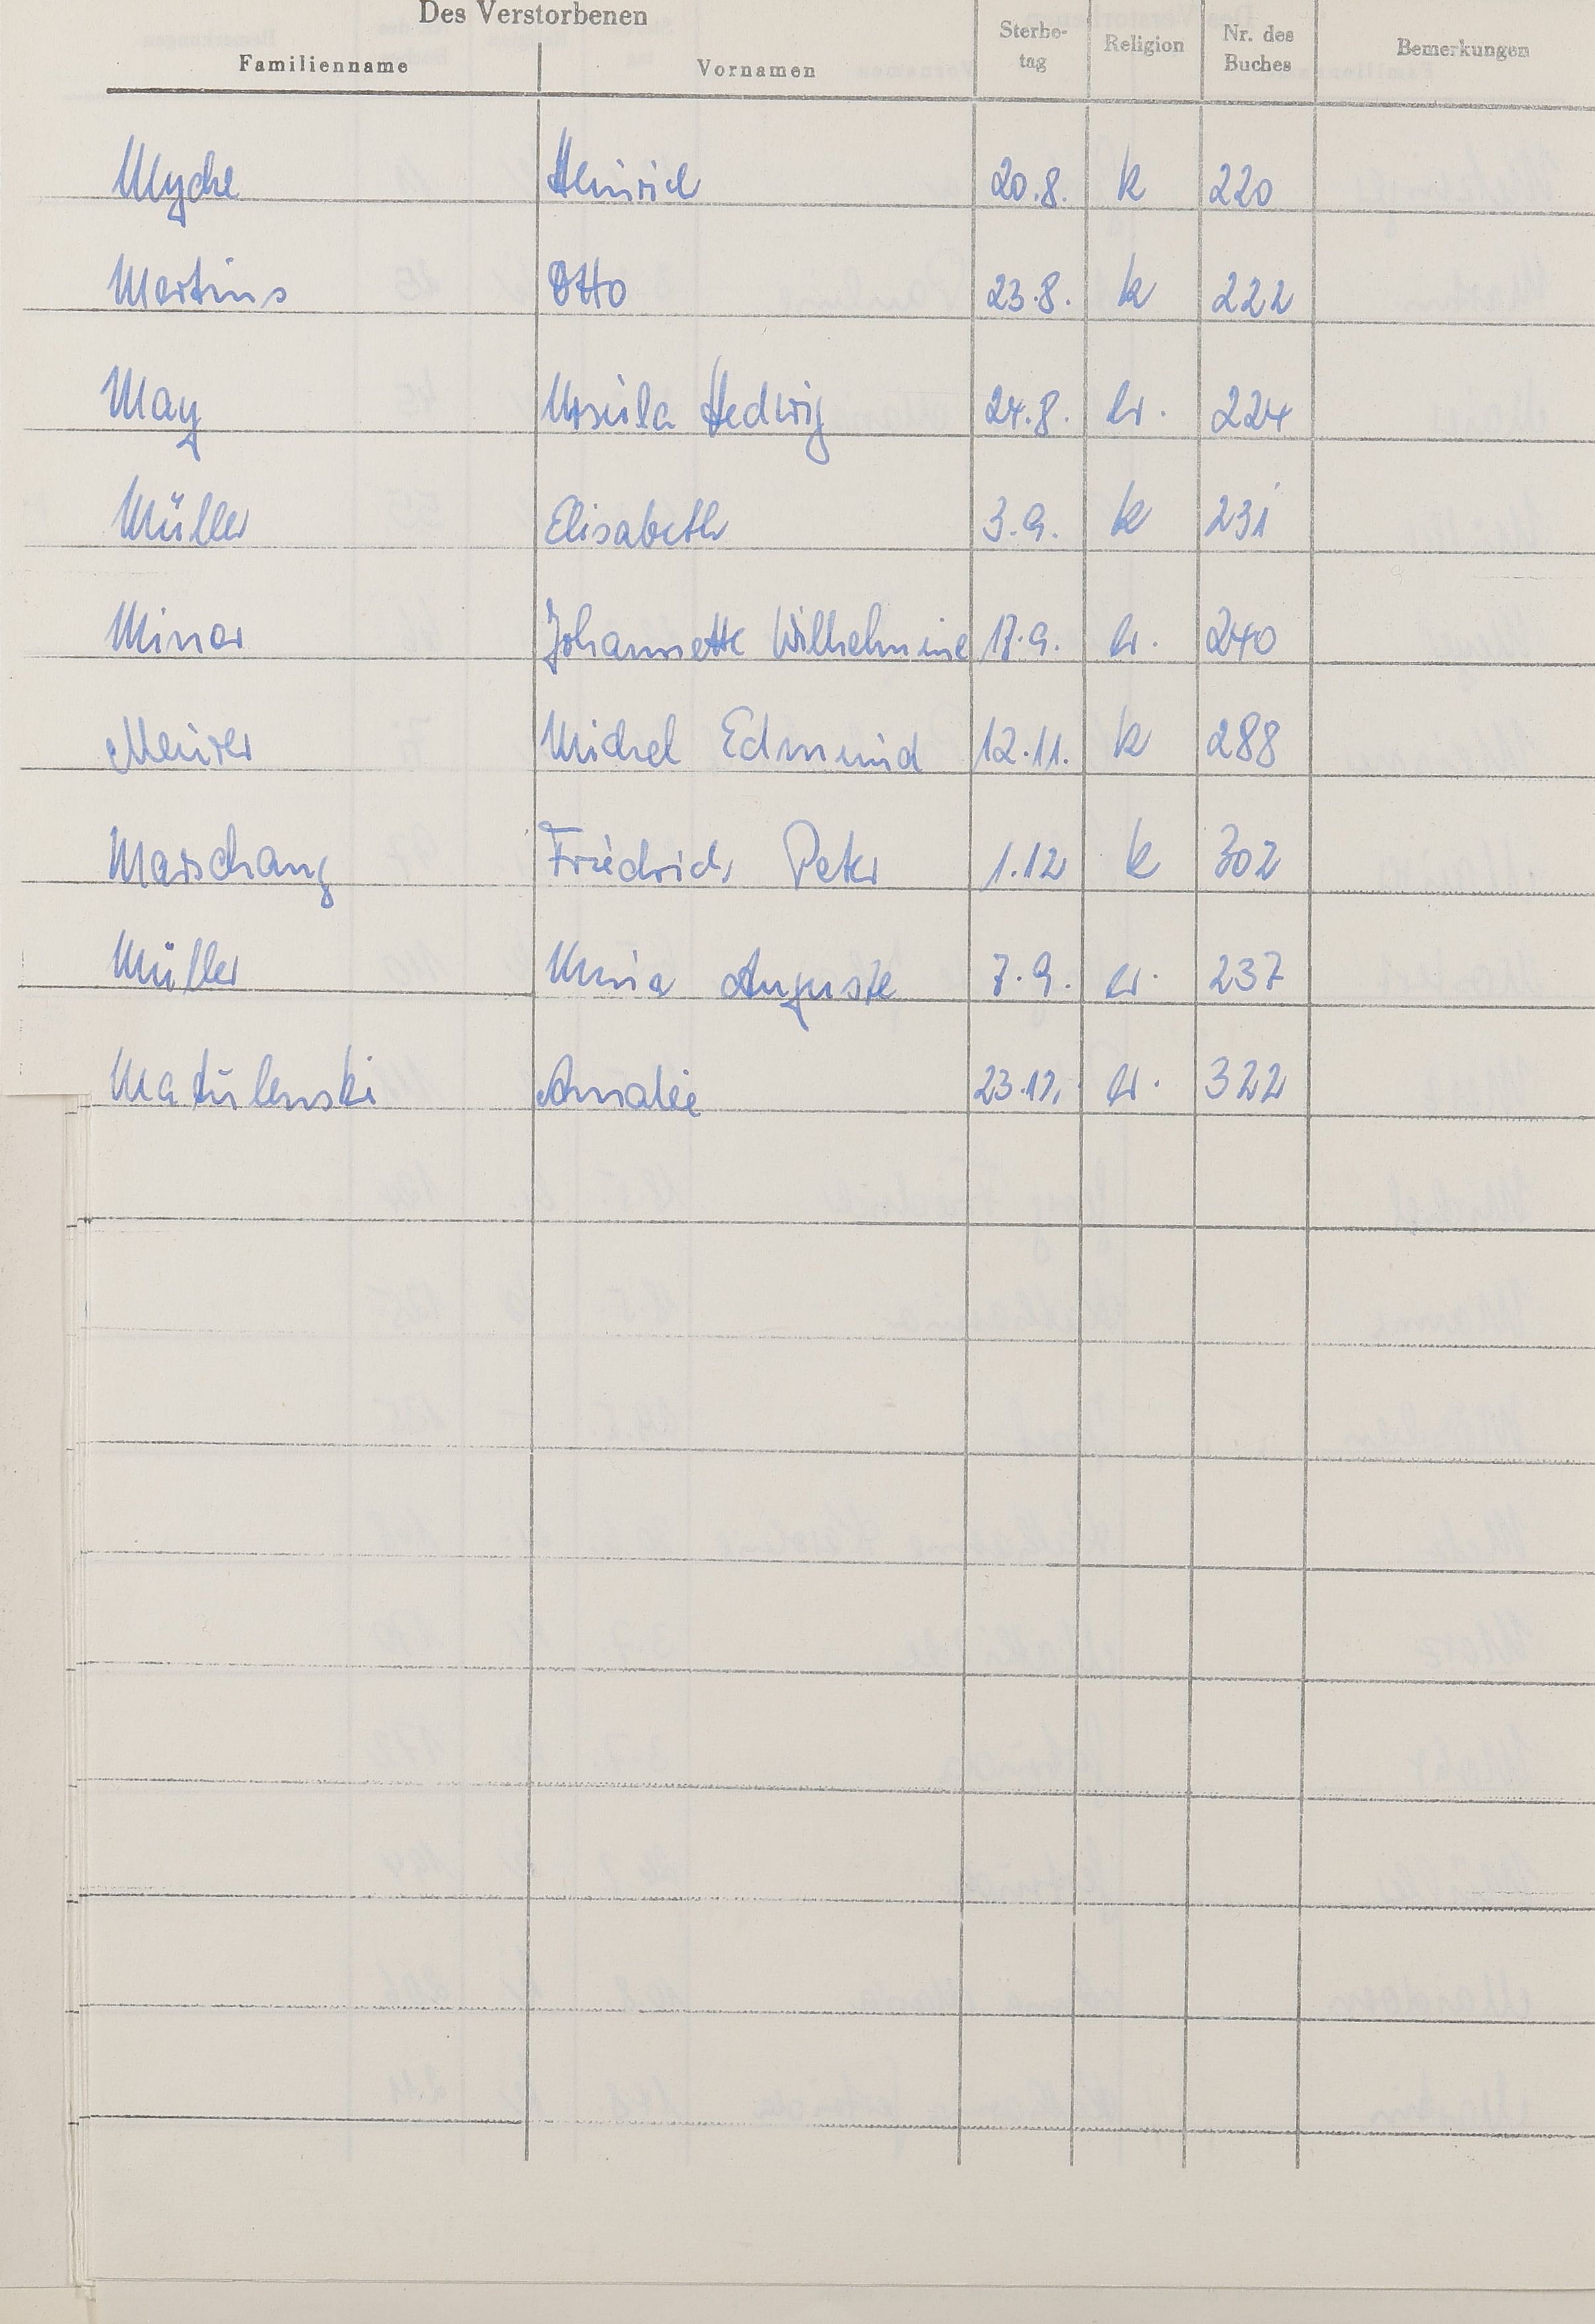 Des Verstorbenen
Familienname Vornamen Sterbe-tag Religion Nr. des Buches Bemerkungen
Myche Heinrich 20.8. k 220
Martins Otto 23.8. k 222
May Ursula Hedwig 24.8. ev. 224
Müller Elisabeth 3.9. k 231
Minor Johannette Wilhelmine 17.9. ev. 240
Meurer Michel Edmund 12.11. k 288
Marschang Friedrich Peter 1.12 k 302
Müller Auguste 7.9. ev. 237
Matulenski Amalie 23.12. ev. 322